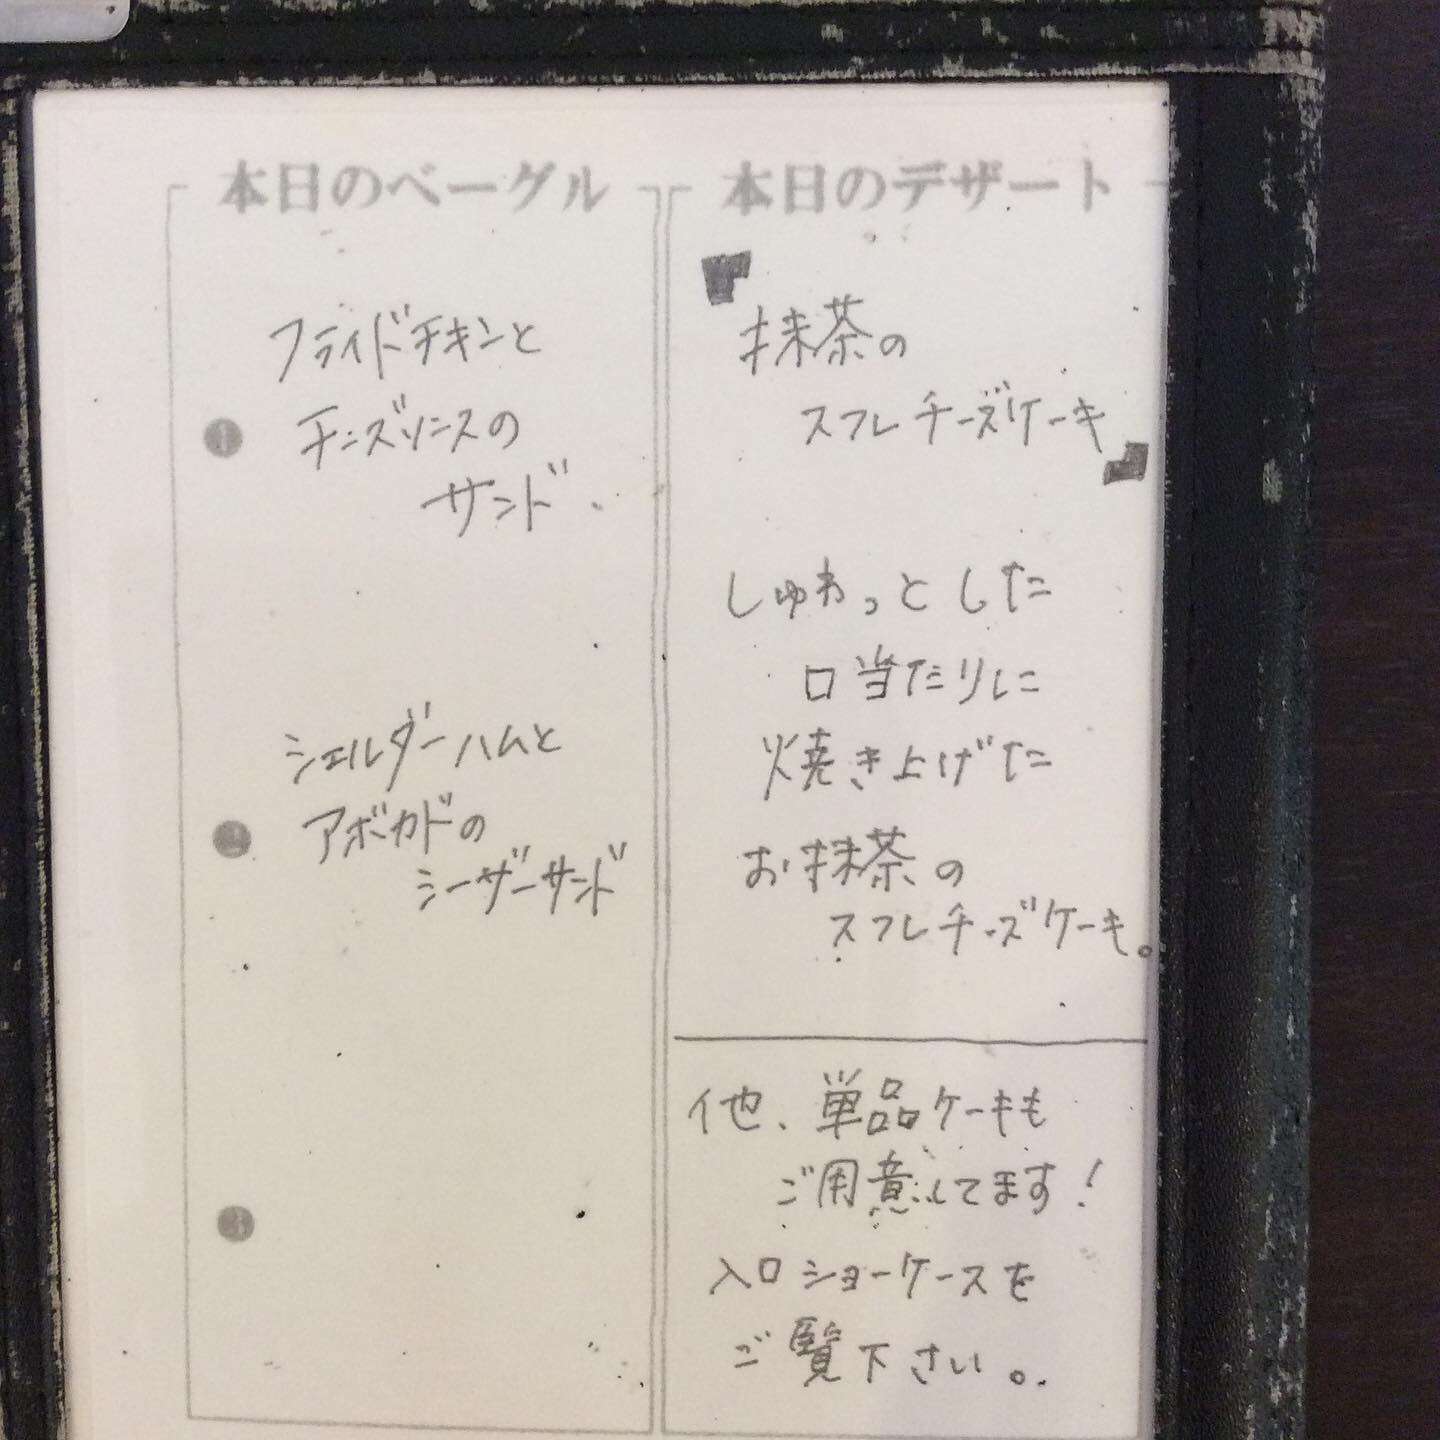 本日のベーグル
❶
フライドチキンと
チーズソースの
サンド.
❷
ショルダーハムと
アボカドの
シーザーサンド
❸
本日のデザート
『抹茶の
スフレチーズケーキ』
しゅわっとした
口当たりに
焼き上げた
お抹茶の
スフレチーズケーキ。
他、単品ケーキも
ご用意してます!
入口ショーケースを
ご覧下さい。